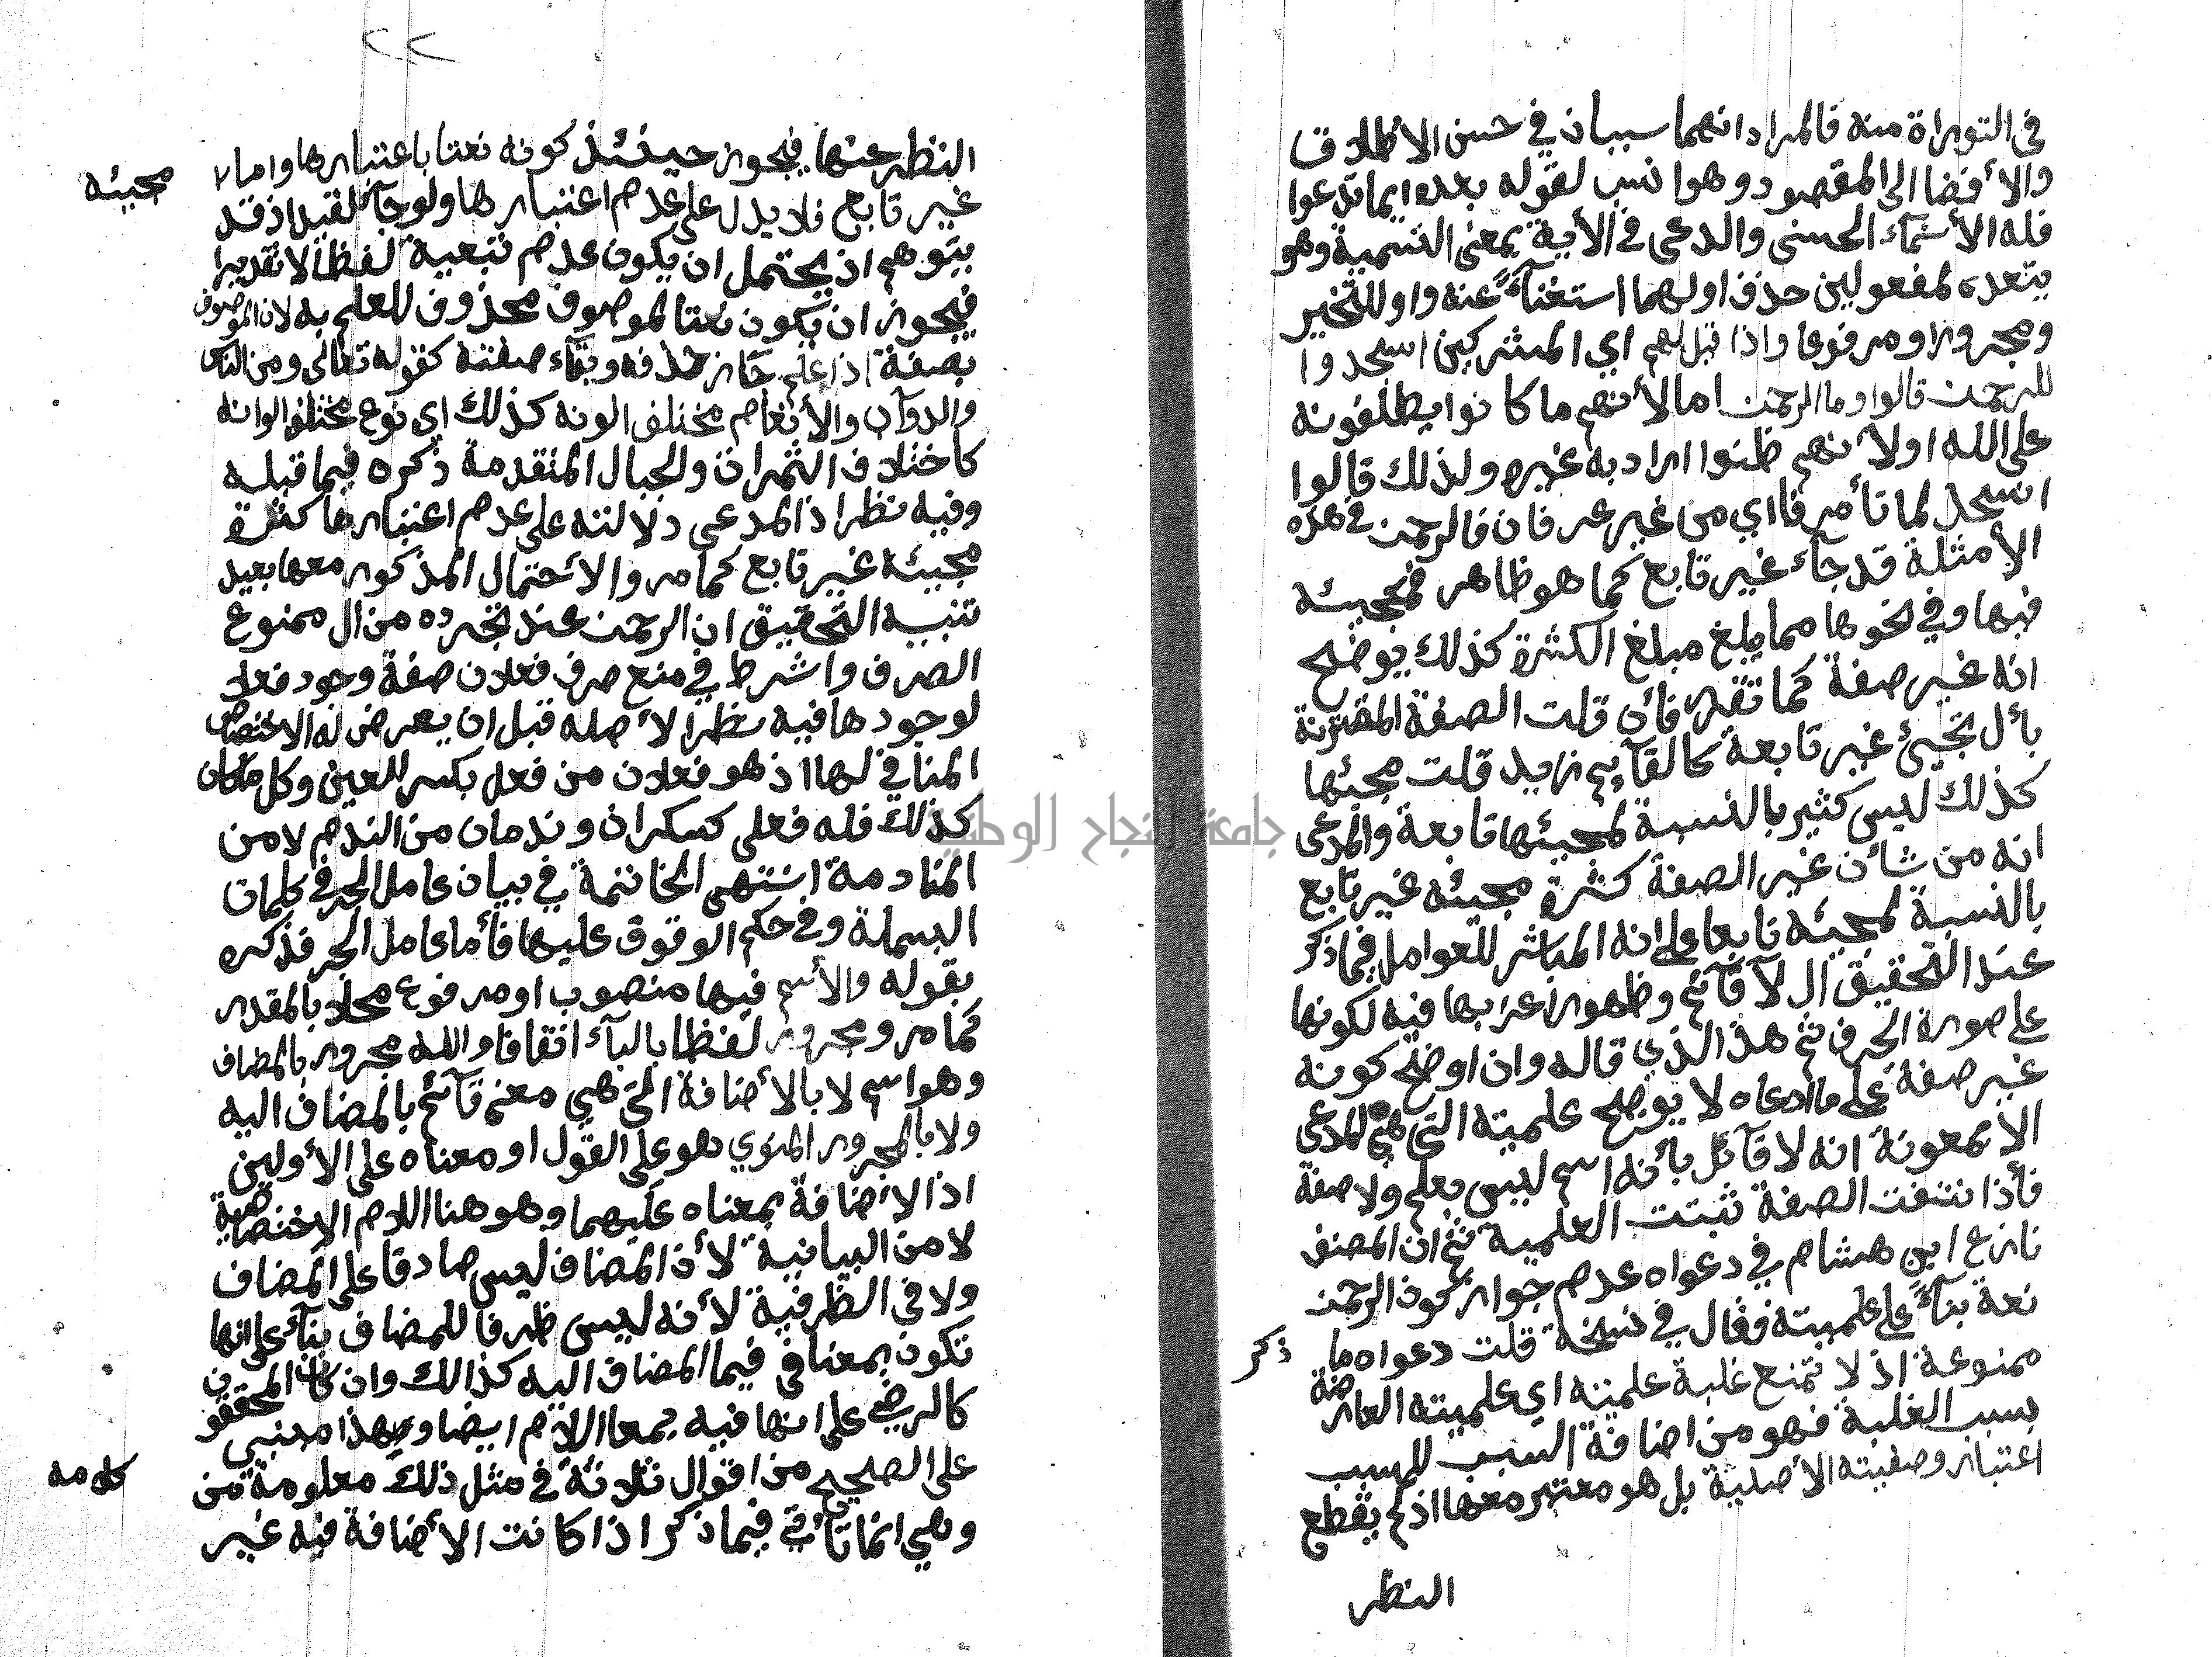 في التوراة منه فالمراد انهما سببان في حسن الاطلاق
والأفضا الى المقصود وهو انسب لقوله بعده ايما تدعوا
فله الأسمآء الحسنى والدعى في الأية بمعنى التسمية وهو
يتعدى لمفعولين حذف اولهما استغنآءً عنه واو للتخير
ومجرورا ومرفوعا واذا قيل لهم اي المشركين اسجدوا
للرحمن قالوا وما الرحمن اما لأنهم ما كانوا يطلقونه
على الله اولأنهم ظنوا اراد به غيره ولذلك قالوا
انسجد لما تأمرنا اي من غير عرفان فالرحمن في هذه
الأمثلة قد جآء غير تابع كما هو ظاهر فمجيئه
فيها وفي نحوها مما يلغ مبلغ الكثرة كذلك يوضح
انه غير صفة كما تقرر فأن قلت الصفة المقترنة
بأل تجيئ غير تابعة كالقآيم زيد قلت مجيئها
كذلك ليس كثير بالنسبة لمجيئها تابعة والمدعى
انه من شأن غير الصفة كثرة مجيئه غير تابع
بالنسبة لمجيئه تابعا على انه المباشر للعوامل فيما ذكر
عند التحقيق ال لا قآئم وظهور اعرابها فيه لكونها
على صورة الحرف ثم هذا الذي قاله وان اوضح كونه
غير صفة على ما ادعاه لا يوضح علميته التي هي المدعى
الا بمعونة انه لا قآئل بأنه اسم ليس بعلم ولا صفة
فأذا نتفت الصفة ثبتت العلمية ثم ان المصنف
نازع ابن هشام في دعواه عدم جواز كون الرحمن
نعة بنآءً على علميته فقال في نسخة قلت دعواه ما
ذكر
ممنوعة اذ لا تمنع غلبة علميته اي علميته العارضة
بسبب الغلبة فهو من اضافة السبب للمسبب
اعتبار وصفيته الأصلية بل هو معتبر معها اذ لم يقطع
النظر
٢٢
النظر عنها فيجوز حينئذ كونه نعتا باعتبارها واما
مجيئه
غير تابع فلا يدل على عدم اعتبارها ولو جآء لقبل اذ قد
يتوهم اذ يحتمل ان يكون عدم تبعيه لفظا لا تقديرا
فيجوز ان يكون نعتا لموصوف محذوف للعلم به لان الموصوف
بصفة اذا علم جاز حذفه وبقآء صفته كقوله تعالى ومن الناس
والدوآب والأنعام مختلف الونه كذلك اي نوع مختلف الوانه
كاختلاف الثمرات والجبال المتقدمة ذكره فيما قبله
وفيه نظر اذ المدعى دلالته على عدم اعتبارها كثرة
مجيئه غير تابع كما مر والأحتمال المذكور معها بعيد
تنبيه التحقيق ان الرحمن عند تجرده من ال ممنوع
الصرف واشرط في منع صرف فعلان صفة وجود فعلى
لوجودها فيه نظرا لأصله قبل ان يعرض له الاختصاص
المنافي لها اذ هو فعلان من فعل بكسر العين وكل ما كان
كذلك فله فعلى كسكران وندمان من الندم لا من
المنادمة انتهى الخاتمة في بيان عامل الجر في كلمات
البسملة وفي حكم الوقوف عليها فأما عامل الجر فذكره
بقوله والأسم فيها منصوب او مرفوع محلا بالمقدر
كما مر ومجرور لفظا بالبآء اتفاقا والله مجرور بالمضاف
وهو اسم لا بالأضافة التي هي معنى قآئم بالمضاف اليه
ولا بالمجرور المنوي هو على القول او معناه على الأولين
اذ الأضافة بمعناه عليهما وهو هنا اللام الاختصاصية
لا من البيانية لأن المضاف ليس صادقا على المضاف
ولا في الظرفية لأنه ليس ظرفا للمضاف بنآء على انها
تكون بمعنا في فيما المضاف اليه كذالك وان كان المحققون
كالرضي على انها فيه بمعا اللام ايضا وهذا مبني
على الصحيح من اقوال ثلاثة في مثل ذلك معلومة من
كلامه
وهي انما تأتي فيما ذكر اذا كانت الأضافة فيه غير
جامعة النجاح الوطنية